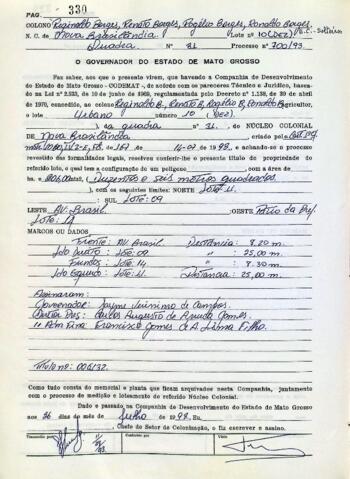 PAG. 330
COLONO Reginaldo Borges, Renato Borges, Rogelio Borges, Ronaldo Borges.
N. C. de Nova Brasilândia Lote nº 10 (DEZ)
Quadra Nº 31 Processo nº 700/93
O GOVERNADOR DO ESTADO DE MATO GROSSO
Faz saber, aos que o presente virem, que havendo a Companhia de Desenvolvimento
do Estado de Mato Grosso - CODEMAT -, de acordo com os pareceres Técnico e Jurídico, basea-
do na Lei nº 2.933, de 10 de junho de 1969, regulamentada pelo Decreto nº 1.138, de 30 de abril
de 1970, concedido, ao colono Reginaldo B, Renato B, Rogelio B, Ronaldo B, agricultor,
o lote Urbano número 10 (DEZ)
), na quadra nº 31, DO NÚCLEO COLONIAL
DE Nova Brasilândia, criado pela
14-07-1998, e achando-se o processo
revestido das formalidades legais, resolveu conferir-lhe o presente título de propriedade do
referido lote, o qual tem a configuração de um polígono, com a área de
duzentos e seis metros quadrados
), com os seguintes limites: NORTE Lote: 11
SUL Lote: 09
LESTE AV: Brasil OESTE Pátio da Pref.
Lote: 14
MARCOS OU DADOS
Frente: AV. Brasil Distância: 8.20 m.
Lado Direito: Lote: 09 " 25,00 m.
Fundos: Lote: 14 " 8.30 m.
Lado Esquerdo: Lote: 11. Distância: 25,00 m.
Assinaram:
Governador: Jayme Verissimo de Campos.
Diretor Pres: Carlos Augusto de Arruda Gomes.
" Adm Fina Francisco Gomes de A. Lima Filho.
Título nº: 006132.
Como tudo consta do memorial e planta que ficam arquivados nesta Companhia, juntamente
com o processo de medição e loteamento do referido Núcleo Colonial.
Dado e passado na Companhia de Desenvolvimento do Estado de Mato Grosso
aos 26 dias do mês de julho de 1998. Eu,
, Chefe do Setor de Colonização, o fiz escrever e assino.
Transcrito por
Conferido por
Visto